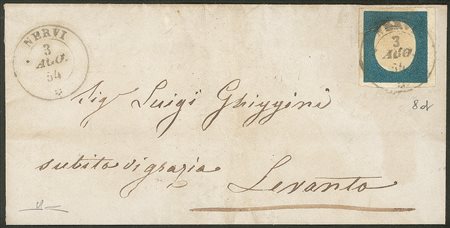 NERVI
3
AUG.
54
NERVI
3
AUG
54
8d
Sig Luigi Ghiggini
subito di grazia
Levanto